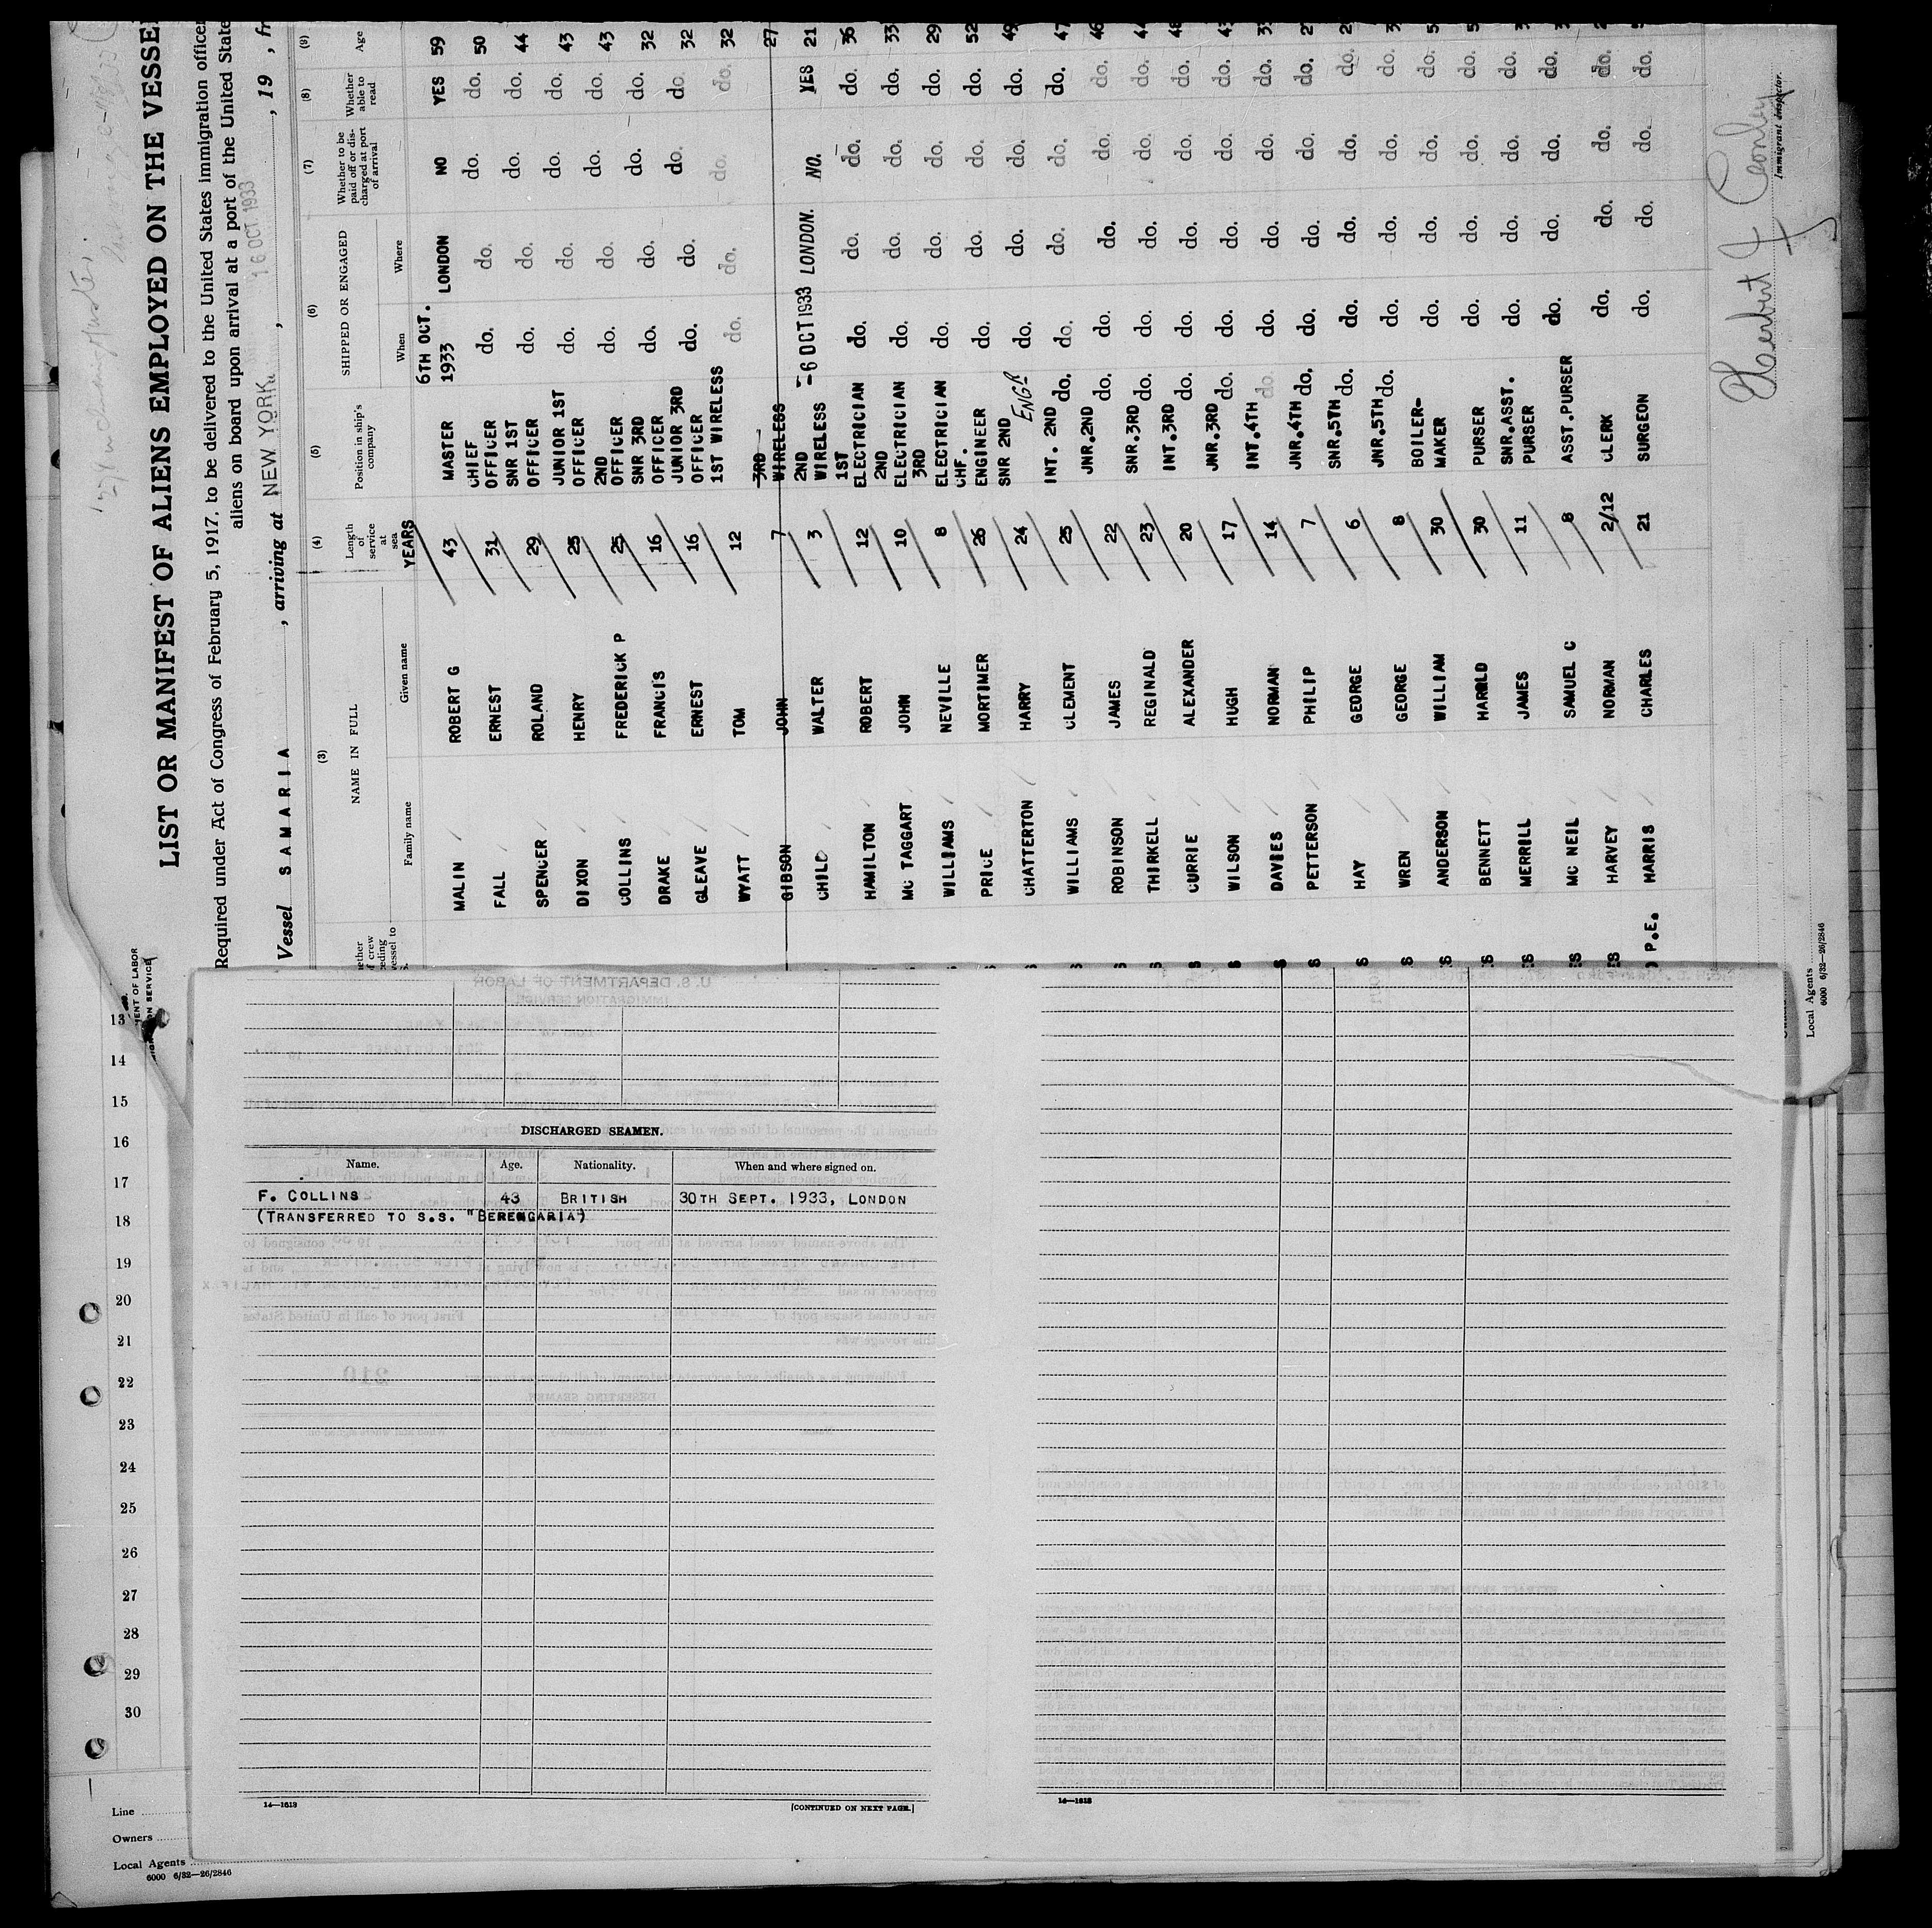 LIST OR MANIFEST OF ALIENS EMPLOYED ON THE VESSE
Required under Act of Congress of February 5, 1917, to be delivered to the United States immigration officer
aliens on board upon arrival at a port of the United State
Vessel SAMARIA , arriving at NEW YORK , 16 OCT 1933 , 19 , fr
(3) (4) (5) (6) (7) (8) (9)
NAME IN FULL
Family name Given name
Length of service at sea
YEARS
Position in ship's company
SHIPPED OR ENGAGED
When Where
Whether to be paid off or discharged at port of arrival
Whether able to read
Age
MALIN ROBERT G 43 MASTER 6TH OCT. 1933 LONDON NO YES 59
FALL ERNEST 31 CHIEF OFFICER do. do. do. do. 50
SPENCER ROLAND 29 SNR 1ST OFFICER do. do. do. do. 44
DIXON HENRY 25 JUNIOR 1ST OFFICER do. do. do. do. 43
COLLINS FREDERICK P 25 2ND OFFICER do. do. do. do. 43
DRAKE FRANCIS 16 SNR 3RD OFFICER do. do. do. do. 32
GLEAVE ERNEST 16 JUNIOR 3RD OFFICER do. do. do. do. 32
WYATT TOM 12 1ST WIRELESS do. do. do. do. 32
GIBSON JOHN 7 3RD WIRELESS 27
CHILD WALTER 3 2ND WIRELESS -6 OCT 1933 LONDON. NO. YES 21
HAMILTON ROBERT 12 1ST ELECTRICIAN do. do. do. do. 36
MC TAGGART JOHN 10 2ND ELECTRICIAN do. do. do. do. 33
WILLIAMS NEVILLE 8 3RD ELECTRICIAN do. do. do. do. 29
PRICE MORTIMER 26 CHF. ENGINEER do. do. do. do. 52
CHATTERTON HARRY 24 SNR 2ND ENGR do. do. do. do. 49
WILLIAMS CLEMENT 25 INT. 2ND do. do. do. do. do. 47
ROBINSON JAMES 22 JNR. 2ND do. do. do. do. do.
THIRKELL REGINALD 23 SNR. 3RD do. do. do. do. do.
CURRIE ALEXANDER 20 INT. 3RD do. do. do. do. do.
WILSON HUGH 17 JNR. 3RD do. do. do. do. do.
DAVIES NORMAN 14 INT. 4TH do. do. do. do. do.
PETTERSON PHILIP 7 JNR. 4TH do. do. do. do. do.
HAY GEORGE 6 SNR. 5TH do. do. do. do. do.
WREN GEORGE 8 JNR. 5TH do. do. do. do. do.
ANDERSON WILLIAM 30 BOILER-MAKER do. do. do. do.
BENNETT HAROLD 30 PURSER do. do. do. do.
MERRILL JAMES 11 SNR. ASST. PURSER do. do. do. do.
MC NEIL SAMUEL C 8 ASST. PURSER do. do. do. do.
HARVEY NORMAN 2/12 CLERK do. do. do. do.
P.E. HARRIS CHARLES 21 SURGEON do. do. do. do.
Immigrant Inspector.
Local Agents
6000 6/32—26/2846
13
14
15
16
17
18
19
20
21
22
23
24
25
26
27
28
29
30
DISCHARGED SEAMEN.
Name. Age. Nationality. When and where signed on.
F. COLLINS 43 BRITISH 30TH SEPT. 1933, LONDON
(TRANSFERRED TO S.S. "BERENGARIA")
14—1613 [CONTINUED ON NEXT PAGE.]
14—1613
Line
Owners
Local Agents
6000 6/32—26/2846